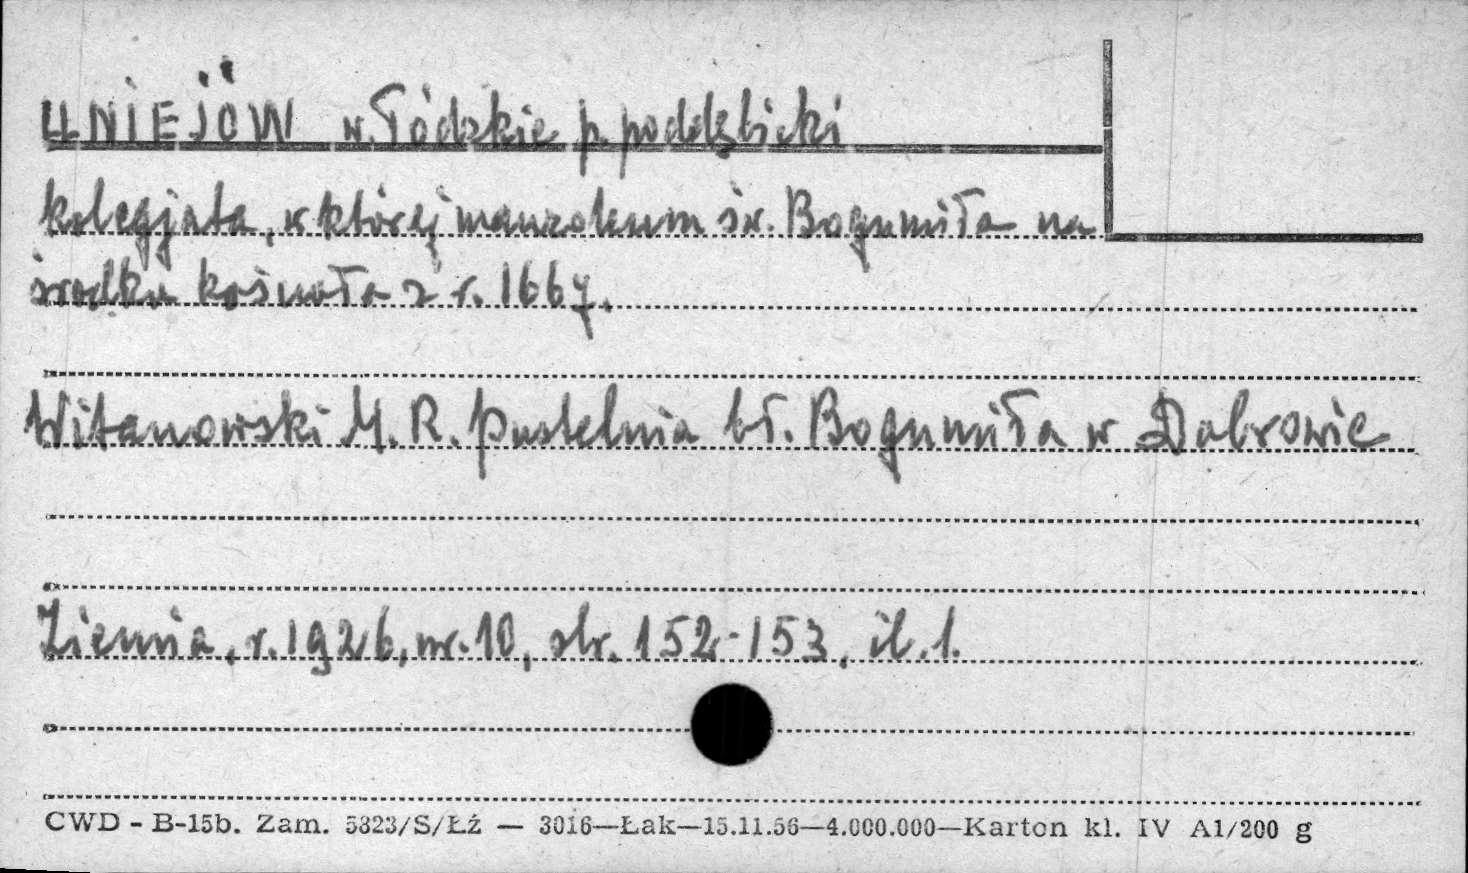 UNIEJÓW w. Łódzkie p. poddębicki
kolegjata, w której mauzoleum św. Bogumiła na
środku kościoła z r. 1667.
Witanowski M. R. Pustelnia bł. Bogumiła w Dobrowie
Ziemia, r. 1926, nr. 10, str. 152-153, il. 1.
CWD - B-15b. Zam. 5323/S/Łź — 3016—Łak—15.11.56—4.000.000—Karton kl. IV A1/200 g